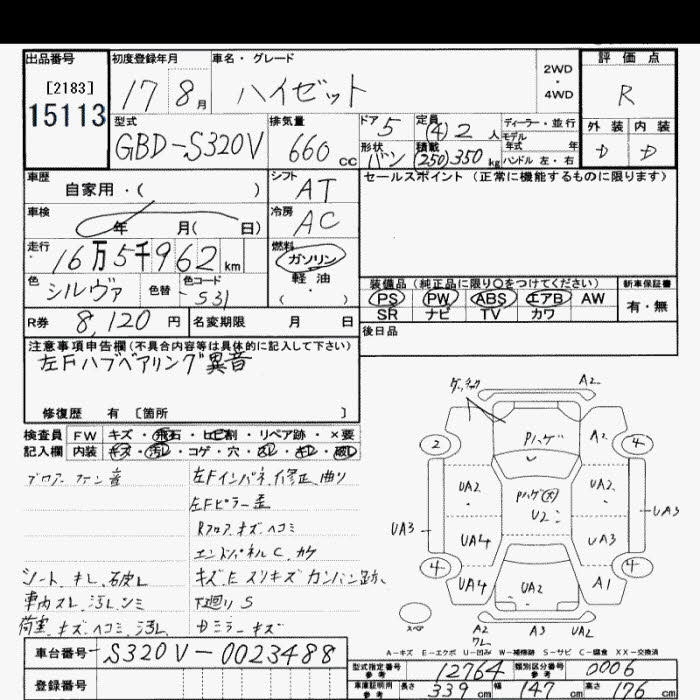 出品番号
[2183]
15113
初度登録年月
17 8月
車名・グレード
ハイゼット
2WD
・
4WD
評価点
R
外装 内装
D D
型式
GBD-S320V
排気量
660 cc
ドア 5
形状 バン
定員 (4) 2 人
積載 (250) 350 kg
ディーラー・並行
モデル年式 年
ハンドル 左・右
車歴
自家用・( )
シフト
AT
セールスポイント (正常に機能するものに限ります)
車検
年 月( 日)
冷房
AC
走行
16万5千962 km
燃料
ガソリン
軽油
・
( )
色
シルヴァ
色替
色コード
S31
装備品 (純正品に限り○をつけてください)
PS PW ABS エアB AW
SR ナビ TV カワ
新車保証書
有・無
R券 8,120 円
名変期限 月 日
後日品
注意事項申告欄(不具合内容等は具体的に記入して下さい)
左Fハブベアリング異音
修復歴 有 〔箇所 〕
検査員
記入欄
FW キズ・飛石・ヒビ割・リペア跡・×要
内装 キズ・汚レ・コゲ・穴・スレ・キレ・破レ
ブロアーファン音
左Fインパネ、修正、曲り
左Fピラー歪
Rフロア、キズ、ヘコミ
エンドパネルC、カケ
シート、キレ、破レ
キズ、E スリキズ カンバン跡、
車内スレ、汚レ、シミ
下廻りS
荷室、キズ、ヘコミ、汚レ、
ミラーキズ
A2
Pハゲ
A2
2
4
UA2
Pハゲ
U2
UA2
UA3
UA3
UA4
UA3
4
4
UA4
UA2
A1
スペア
A2
ワレ
A3
UA2
A-キズ E-エクボ U-凹み W-補修跡 S-サビ C-腐食 XX-交換済
車台番号
S320V-0023488
登録番号
型式指定番号
参考
12764
類別区分番号
参考
0006
車庫証明用
参考
長さ 339 cm
幅 147 cm
高さ 176 cm